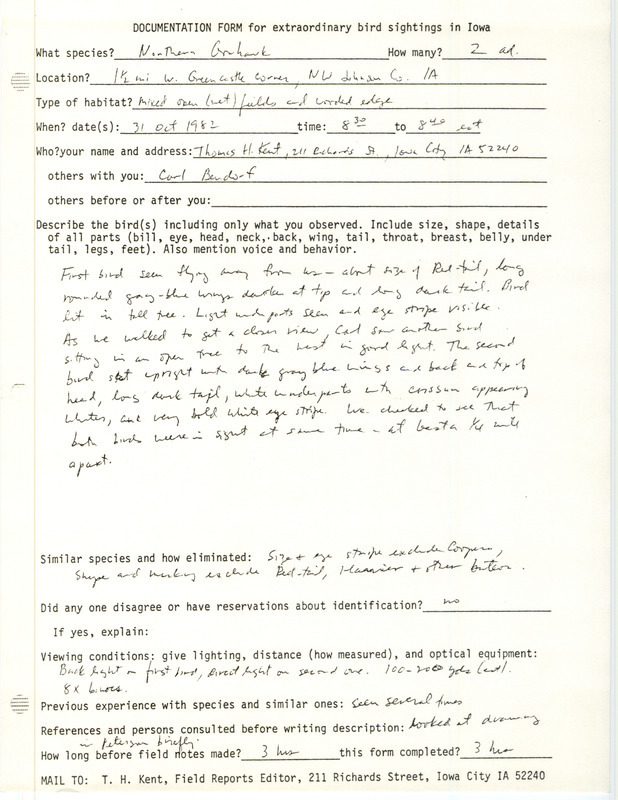 DOCUMENTATION FORM for extraordinary bird sightings in Iowa
What species? Northern Goshawk How many? 2 ad.
Location? 1½ mi W. Greencastle corner, NW Johnson Co. IA
Type of habitat? Mixed open (wet) fields and wooded edge
When? date(s): 31 Oct 1982 time: 8 30 to 8 40 est
Who?your name and address: Thomas H. Kent, 211 Richards St, Iowa City IA 52240
others with you: Carl Bendorf
others before or after you:
Describe the bird(s) including only what you observed. Include size, shape, details
of all parts (bill, eye, head, neck, back, wing, tail, throat, breast, belly, under
tail, legs, feet). Also mention voice and behavior.
First bird seen flying away from us - about size of Red-tail, long
rounded gray-blue wings darker at tip and long dark tail. Bird
lit in tall tree. Light underparts seen and eye stripe visible.
As we walked to get a closer view, Carl saw another bird
sitting in an open tree to the west in good light. The second
bird sat upright with dark gray blue wings and back and top of
head, long dark tail, white underparts with crissum appearing
whiter, and very bold white eye stripe. We checked to see that
both birds were in sight at same time - at least a ¼ mile
apart.
Similar species and how eliminated: Size + eye stripe exclude Coopers,
Shape and marking exclude Red-tail, Harrier + other buteos.
Did any one disagree or have reservations about identification? no
If yes, explain:
Viewing conditions: give lighting, distance (how measured), and optical equipment:
Back light on first bird, direct light on second one. 100-200 yds (est).
8X binocs.
Previous experience with species and similar ones: seen several times
References and persons consulted before writing description: looked at drawing
in Peterson briefly
How long before field notes made? 3 hrs this form completed? 3 hrs
MAIL TO: T. H. Kent, Field Reports Editor, 211 Richards Street, Iowa City IA 52240